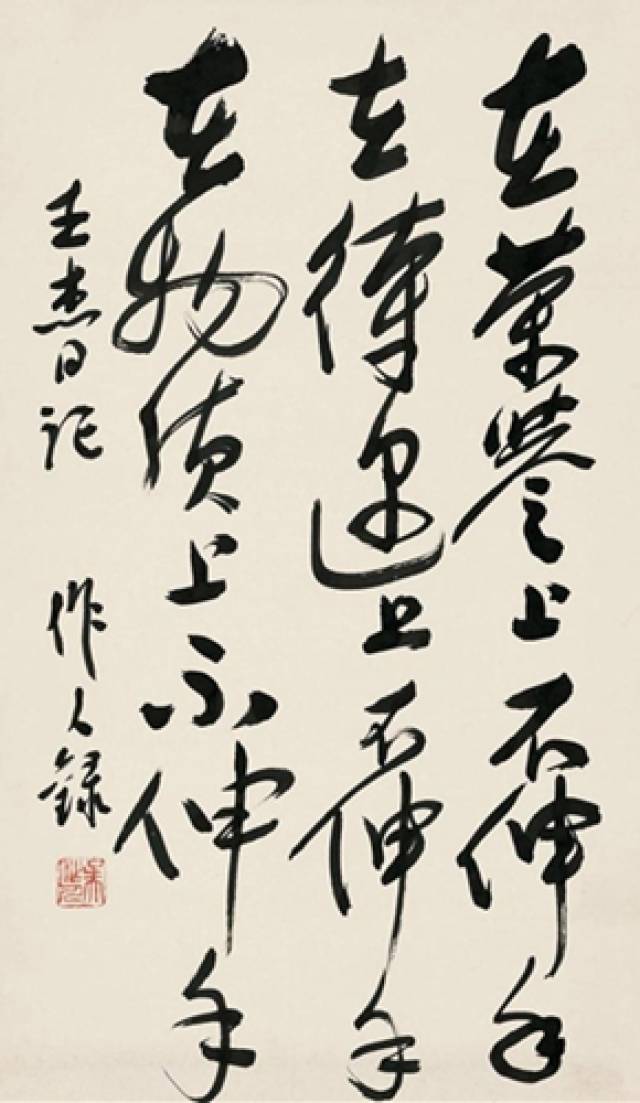 在荣誉上不伸手
在待遇上不伸手
在物质上不伸手
王杰日记 作人录